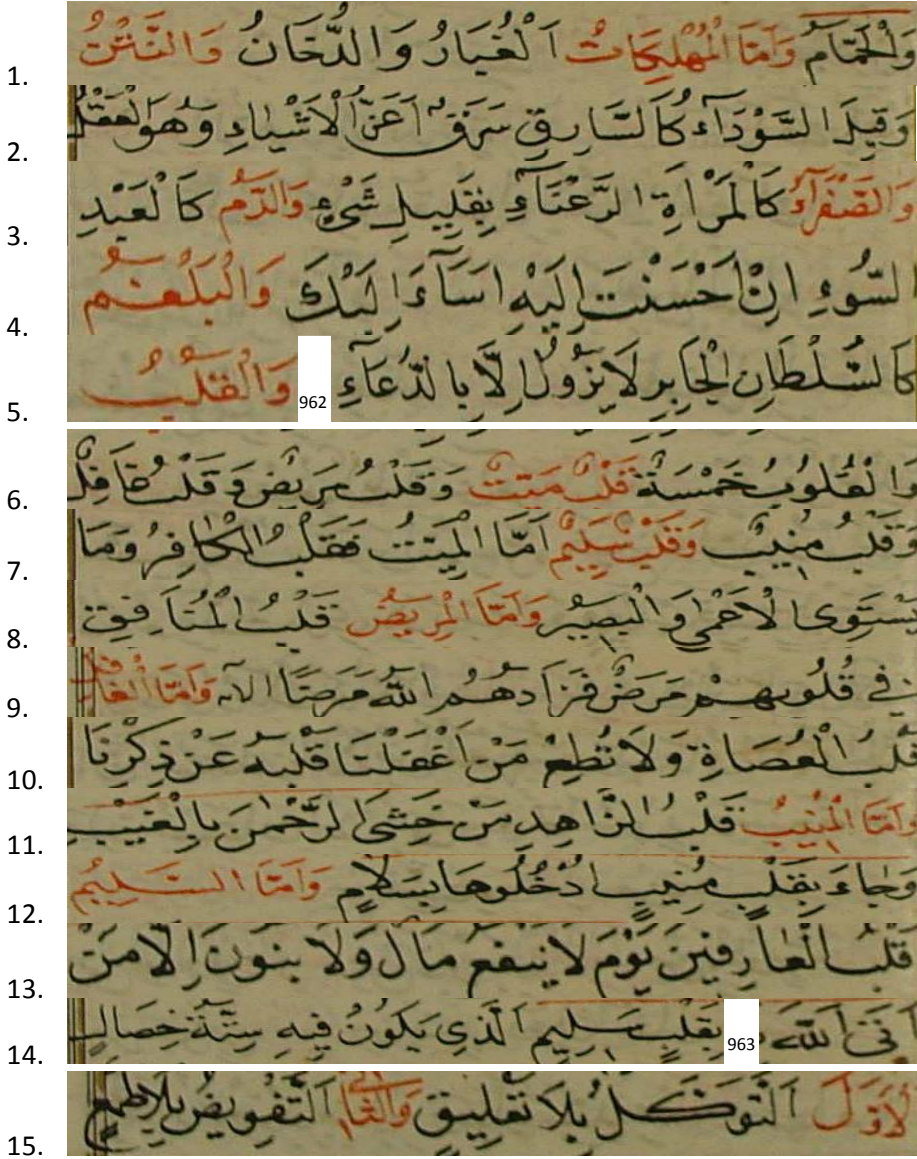 1. وَالْحَمَّامُ وَاَمَّا الْمُهْلِكَاتُ اَلْغُبَارُ وَالدُّخَانُ وَالنَّتْنُ
2. وَقِيلَ السَّوْدَآءُ كَالسَّارِقِ سَرَقَ اَعَزَّ الْاَشْيَاءِ وَهُوَ الْعَقْلُ
3. وَالصَّفْرَآءُ كَالْمَرْاَةِ الرَّعْنَآءِ بِقَلِيلِ شَيْءٍ وَالدَّمُ كَالْعَبْدِ
4. السُّوءِ اِنْ اَحْسَنْتَ اِلَيْهِ اَسَآءَ اِلَيْكَ وَالْبَلْغَمُ
5. كَالسُّلْطَانِ الْجَابِرِ لَا يَزُولُ اِلَّا بِالدُّعَآءِ 962 وَالْقَلْبُ
6. وَالْقُلُوبُ خَمْسَةٌ قَلْبٌ مَيِّتٌ وَقَلْبٌ مَرِيضٌ وَقَلْبٌ غَافِلٌ
7. وَقَلْبٌ مُنِيبٌ وَقَلْبٌ سَلِيمٌ اَمَّا الْمَيِّتُ فَقَلْبُ الْكَافِرِ وَمَا
8. يَسْتَوِى الْاَعْمٰى وَالْبَصِيرُ وَاَمَّا الْمَرِيضُ قَلْبُ الْمُنَافِقِ
9. فِي قُلُوبِهِمْ مَرَضٌ فَزَادَهُمُ اللّٰهُ مَرَضًا الاٰيه وَاَمَّا الْغَافِلُ
10. قَلْبُ الْعُصَاةِ وَلَا تُطِعْ مَنْ اَغْفَلْنَا قَلْبَهُ عَنْ ذِكْرِنَا
11. وَاَمَّا الْمُنِيبُ قَلْبُ الزَّاهِدِ مَنْ خَشِىَ الرَّحْمٰنَ بِالْغَيْبِ
12. وَجَاءَ بِقَلْبٍ مُنِيبٍ ادْخُلُوهَا بِسَلَامٍ وَاَمَّا السَّلِيمُ
13. قَلْبُ الْعَارِفِينَ يَوْمَ لَا يَنْفَعُ مَالٌ وَلَا بَنُونَ اِلَّا مَنْ
14. اَتَى اللّٰهَ بِقَلْبٍ سَلِيمٍ 963 اَلَّذِى يَكُونُ فِيهِ سِتَّةُ خِصَالٍ
15. لْاَوَّلُ اَلتَّوَكُّلُ بِلَا تَعْلِيقٍ وَالثَّانِى اَلتَّفْوِيضُ بِلَا طَمَعٍ